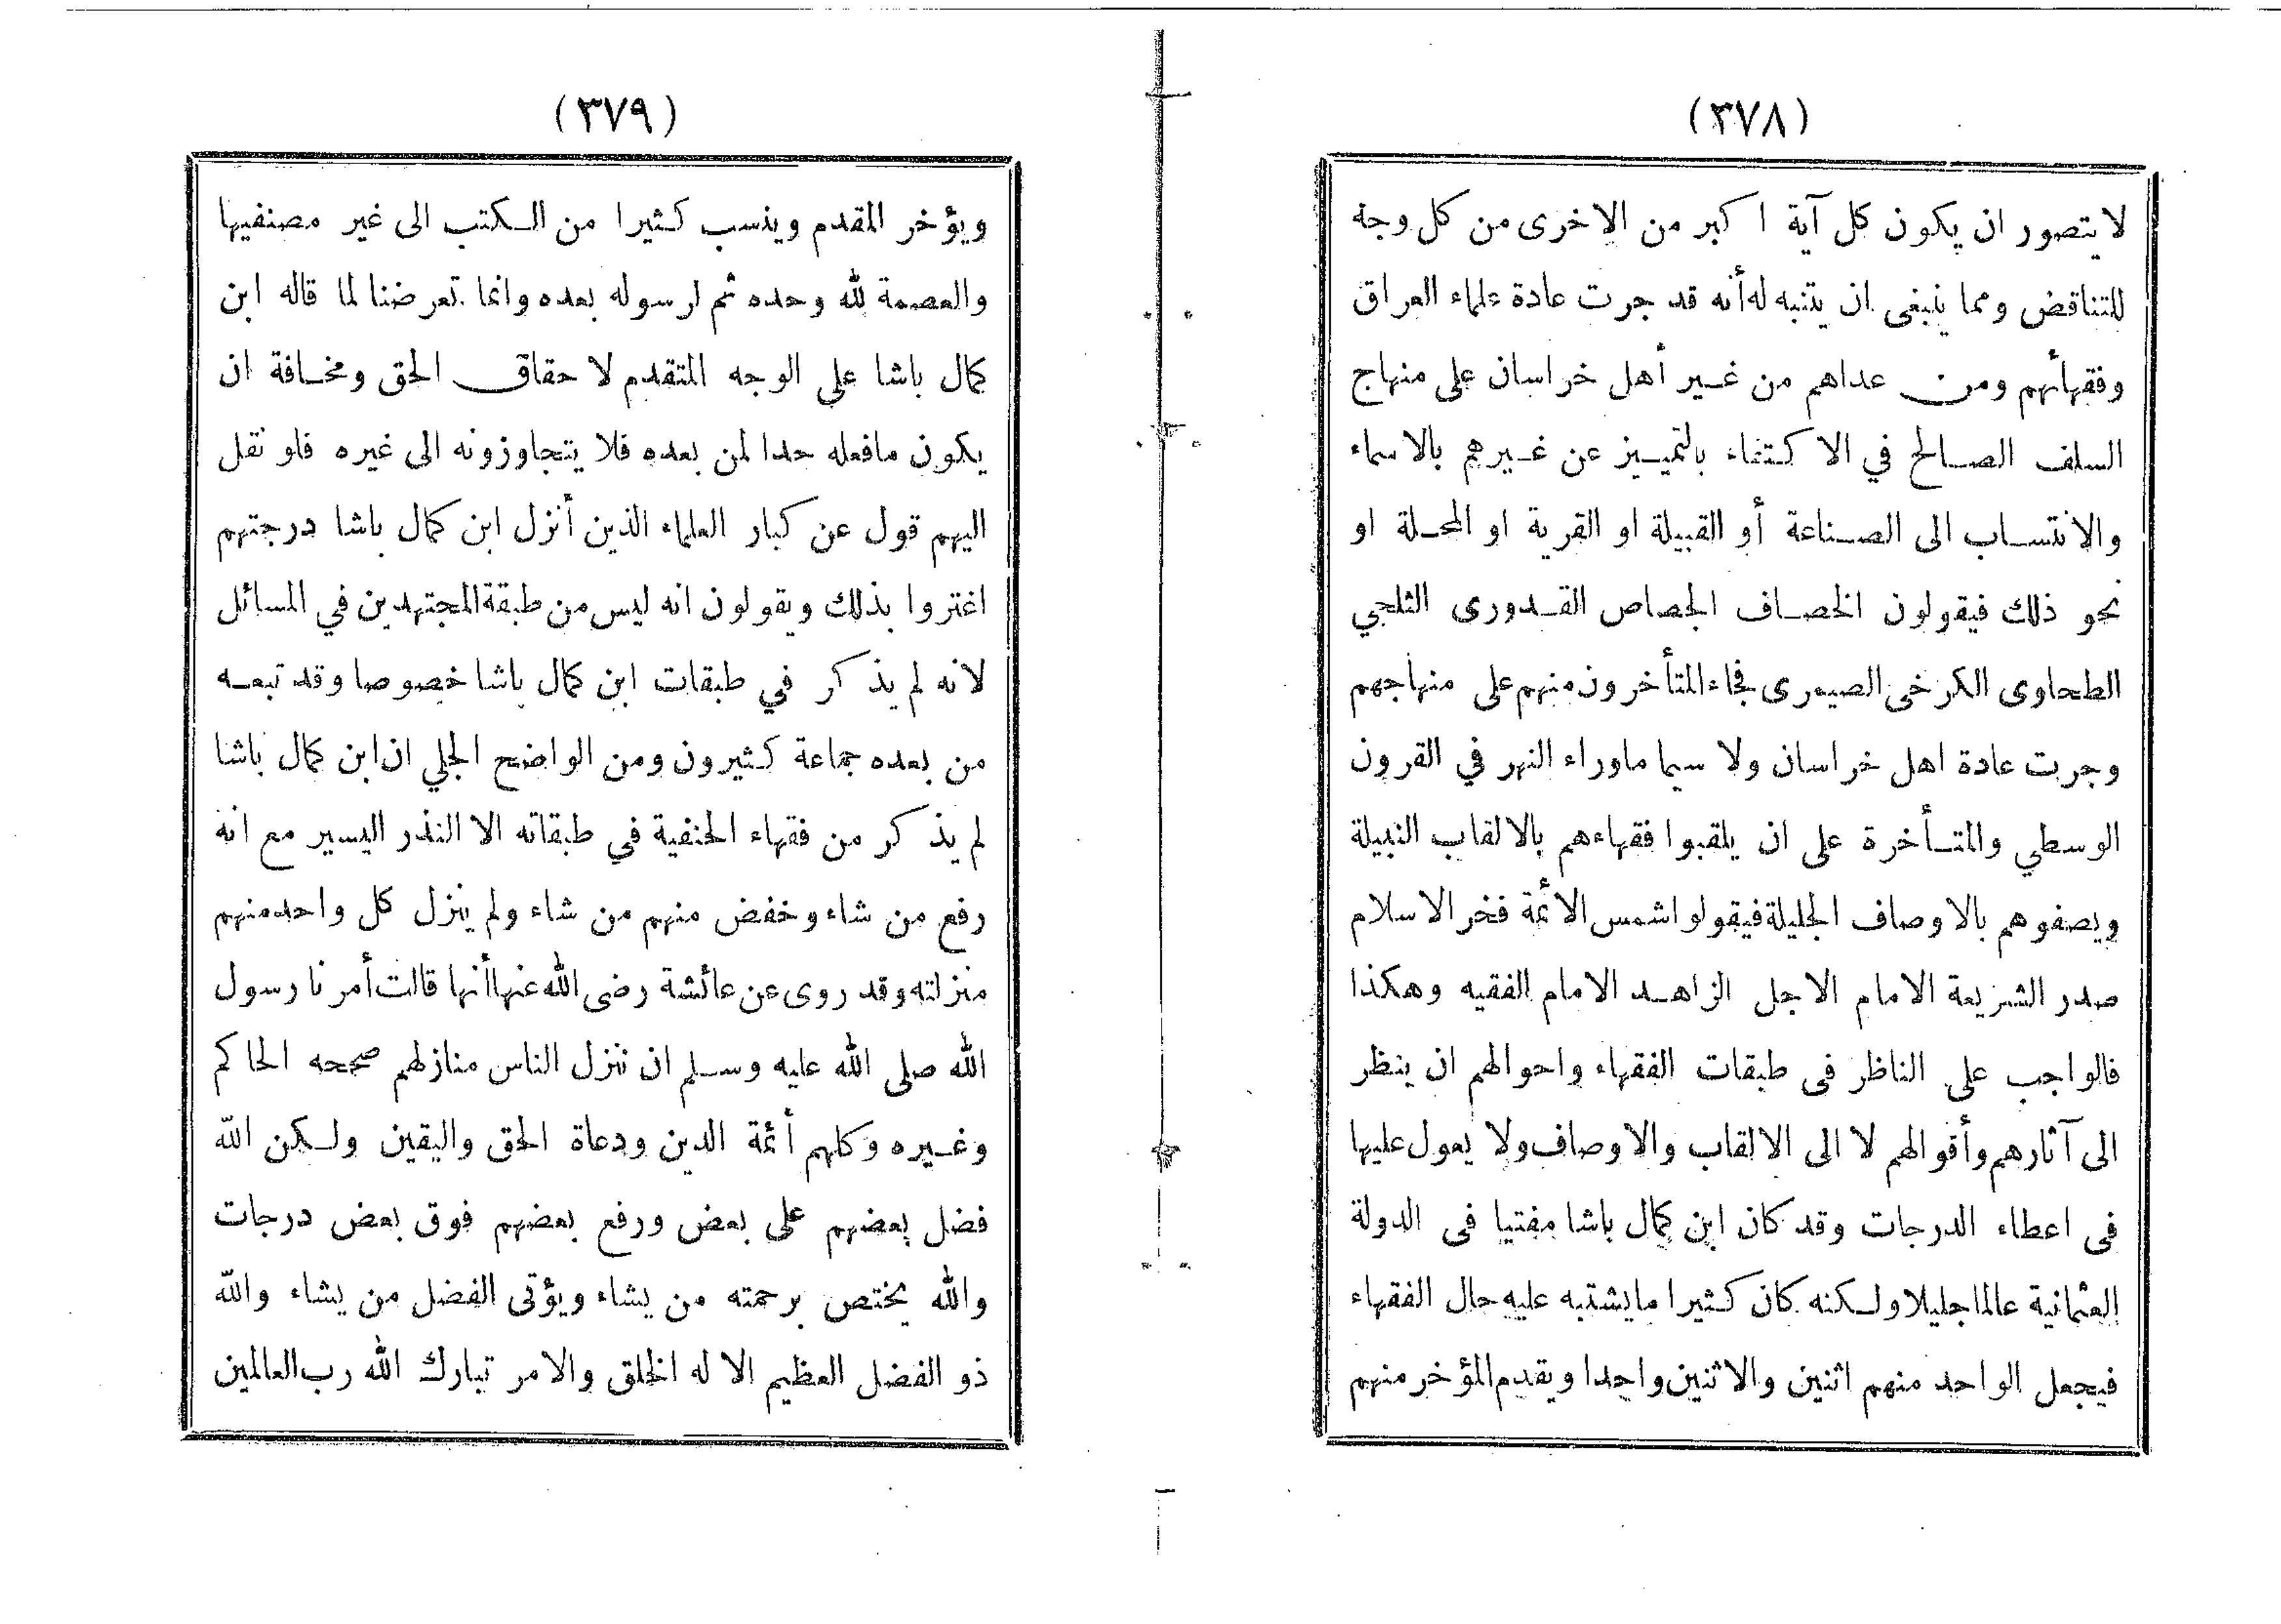 (٣٧٨)
لا يتصور ان يكون كل آية ا كبر من الاخرى من كل وجه
للتناقض ومما ينبغى ان يتنبه له أنه قد جرت عادة علماء العراق
وفقهائهم ومن عداهم من غير أهل خراسان على منهاج
السلف الصالح في الاكتفاء بالتمييز عن غيرهم بالاسماء
والانتساب الى الصناعة أو القبيلة او القرية او المحلة او
نحو ذلك فيقولون الخصاف الجصاص القدورى الثلجي
الطحاوى الكرخى الصيمرى فجاء المتأخرون منهم على منهاجهم
وجرت عادة اهل خراسان ولا سيما ماوراء النهر في القرون
الوسطي والمتأخرة على ان يلقبوا فقهاءهم بالالقاب النبيلة
ويصفوهم بالاوصاف الجليلة فيقولوا شمس الائمة فخر الاسلام
صدر الشريعة الامام الاجل الزاهد الامام الفقيه وهكذا
فالواجب على الناظر فى طبقات الفقهاء واحوالهم ان ينظر
الى آثارهم وأقوالهم لا الى الالقاب والاوصاف ولا يعول عليها
فى اعطاء الدرجات وقد كان ابن كمال باشا مفتيا فى الدولة
العثمانية عالما جليلا ولكنه كان كثيرا ما يشتبه عليه حال الفقهاء
فيجعل الواحد منهم اثنين والاثنين واحدا ويقدم المؤخر منهم
(٣٧٩)
ويؤخر المقدم وينسب كثيرا من الكتب الى غير مصنفيها
والعصمة لله وحده ثم لرسوله بعده وانما تعرضنا لما قاله ابن
كمال باشا على الوجه المتقدم لاحقاق الحق ومخافة ان
يكون مافعله حدا لمن بعده فلا يتجاوزونه الى غيره فلو نقل
اليهم قول عن كبار العلماء الذين أنزل ابن كمال باشا درجتهم
اغتروا بذلك ويقولون انه ليس من طبقة المجتهدين في المسائل
لانه لم يذكر في طبقات ابن كمال باشا خصوصا وقد تبعه
من بعده جماعة كثيرون ومن الواضح الجلي ان ابن كمال باشا
لم يذكر من فقهاء الحنفية في طبقاته الا النذر اليسير مع انه
رفع من شاء وخفض منهم من شاء ولم ينزل كل واحد منهم
منزلته وقد روى عن عائشة رضى الله عنها أنها قالت أمرنا رسول
الله صلى الله عليه وسلم ان ننزل الناس منازلهم صححه الحاكم
وغيره وكلهم أئمة الدين ودعاة الحق واليقين ولكن الله
فضل بعضهم على بعض ورفع بعضهم فوق بعض درجات
والله يختص برحمته من يشاء ويؤتى الفضل من يشاء والله
ذو الفضل العظيم الا له الخلق والامر تبارك الله رب العالمين